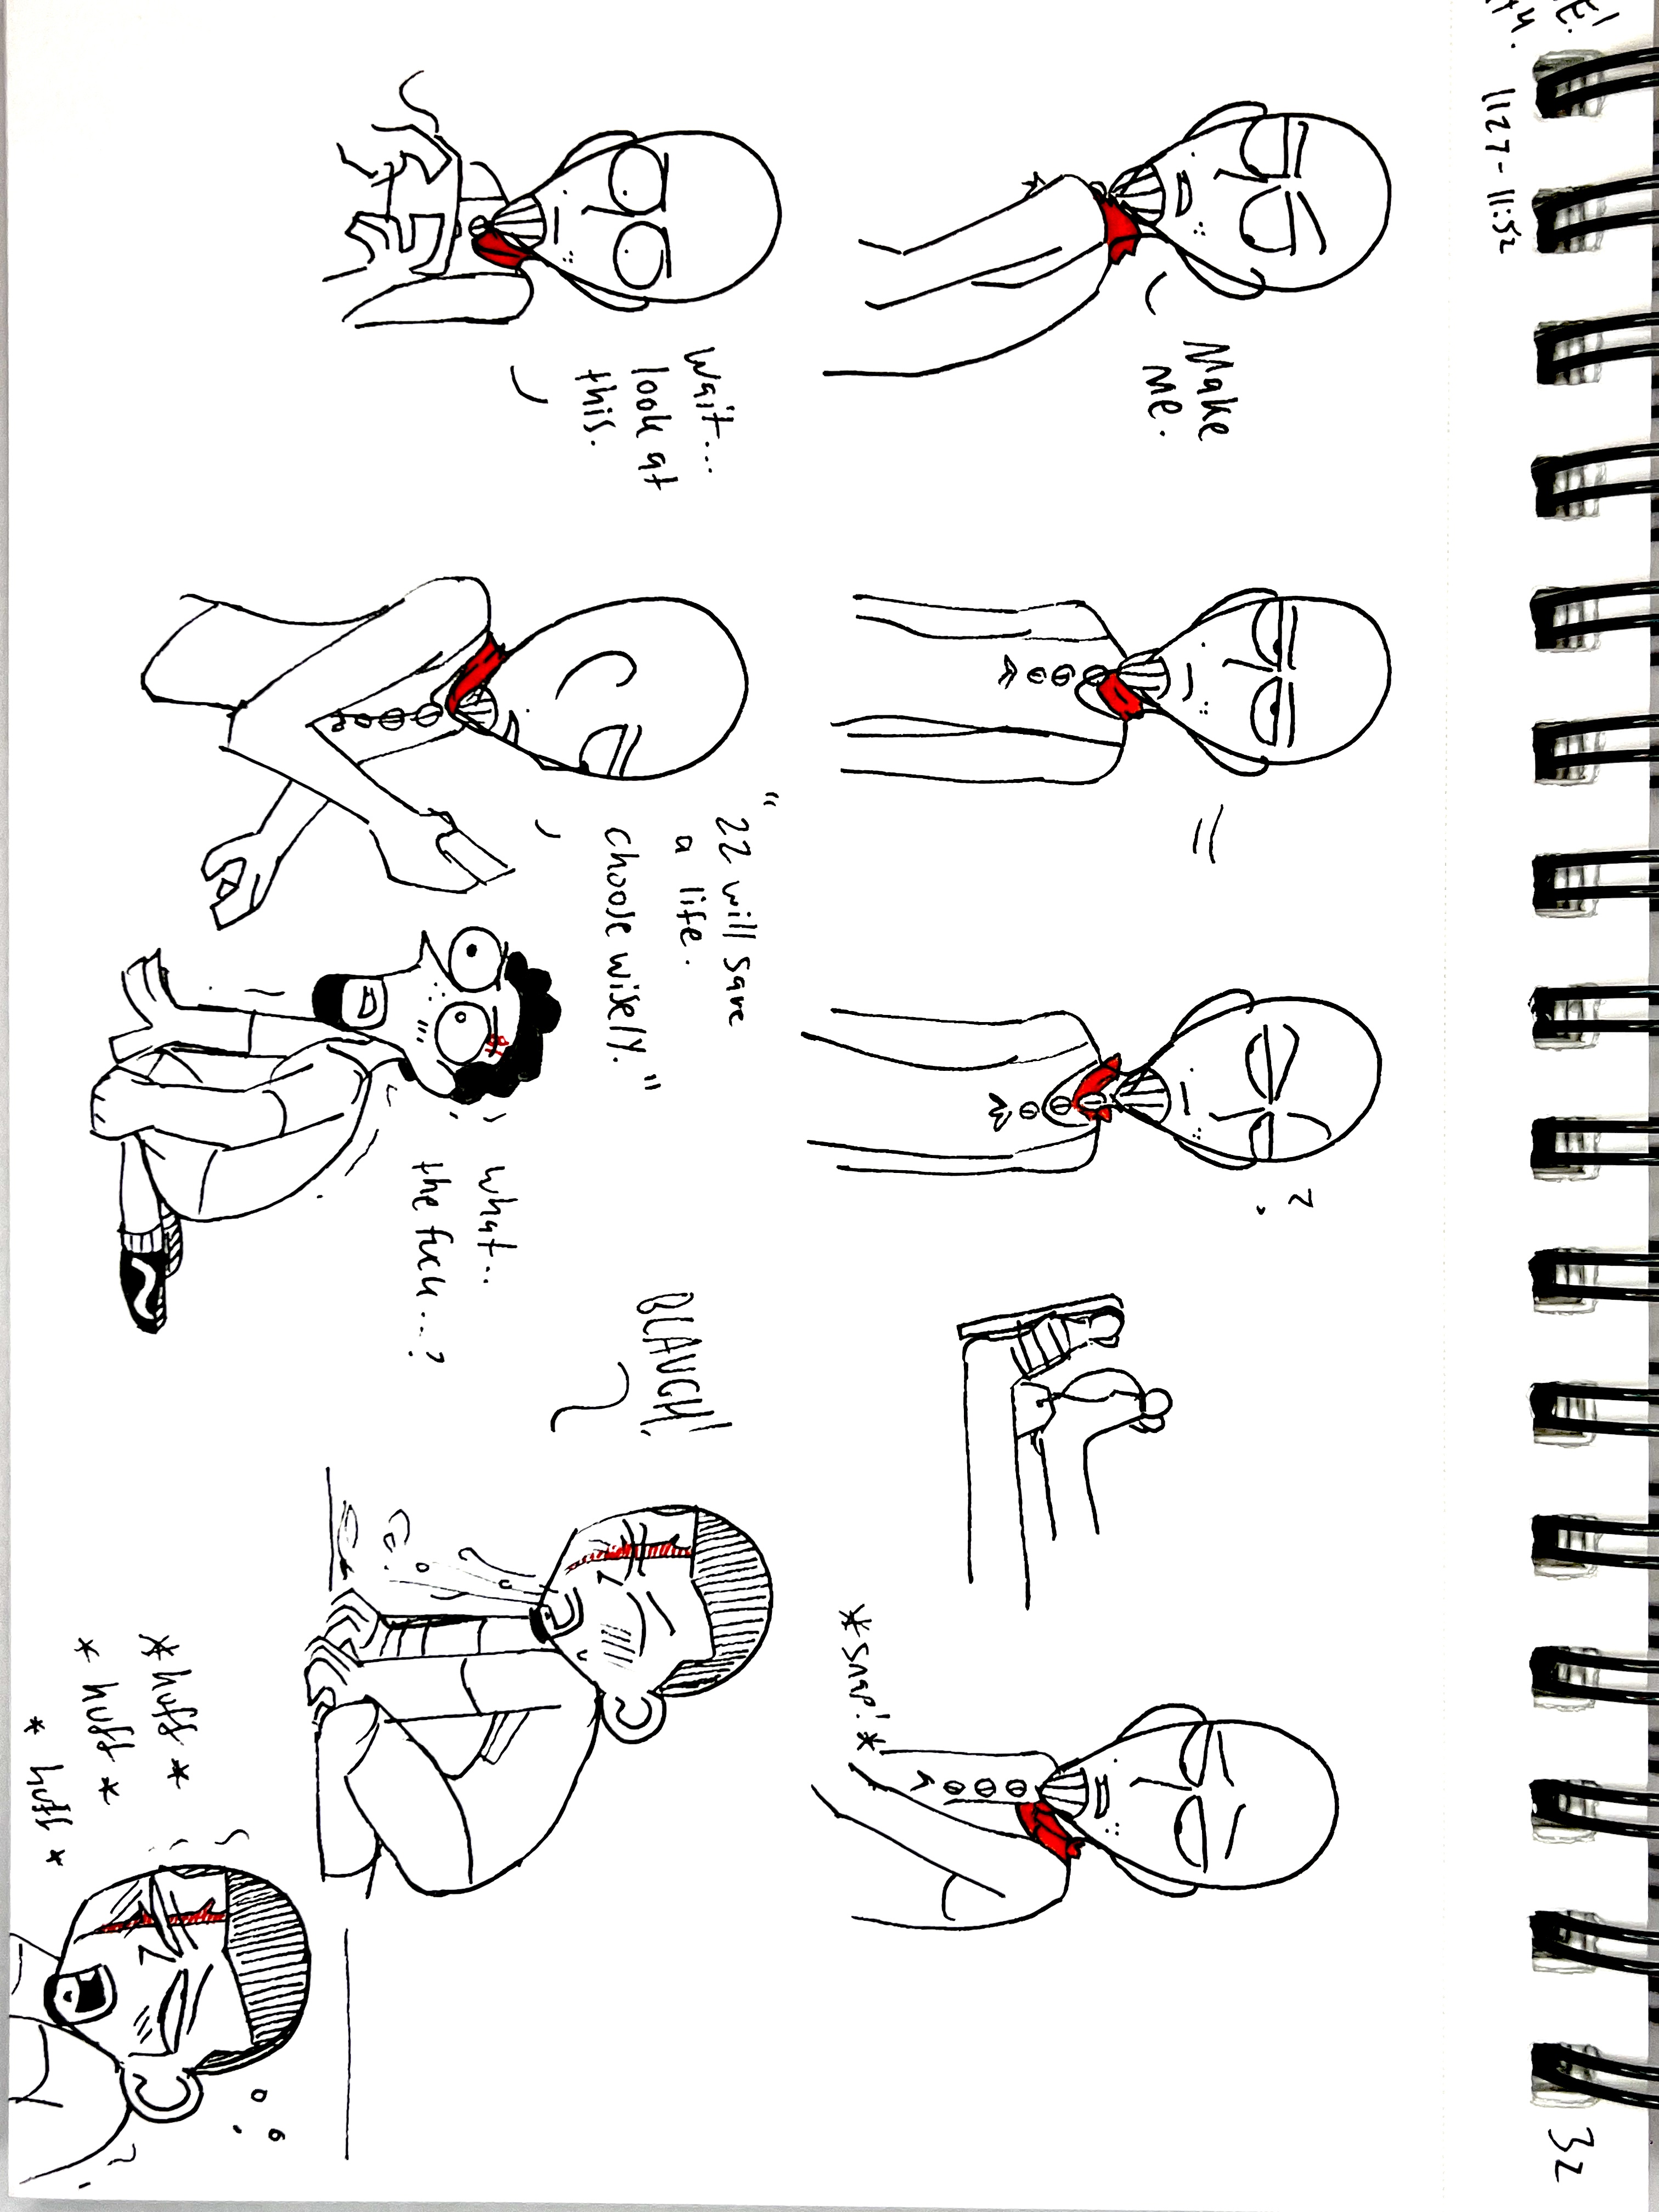 E!
32
1127-11:52
Make
me.
?
*snap!*
Wait...
look at
this.
"22 will save
a life.
choose wisely."
what..
the fuck...?
BLAUGH!
*huff*
*huff*
*huff*